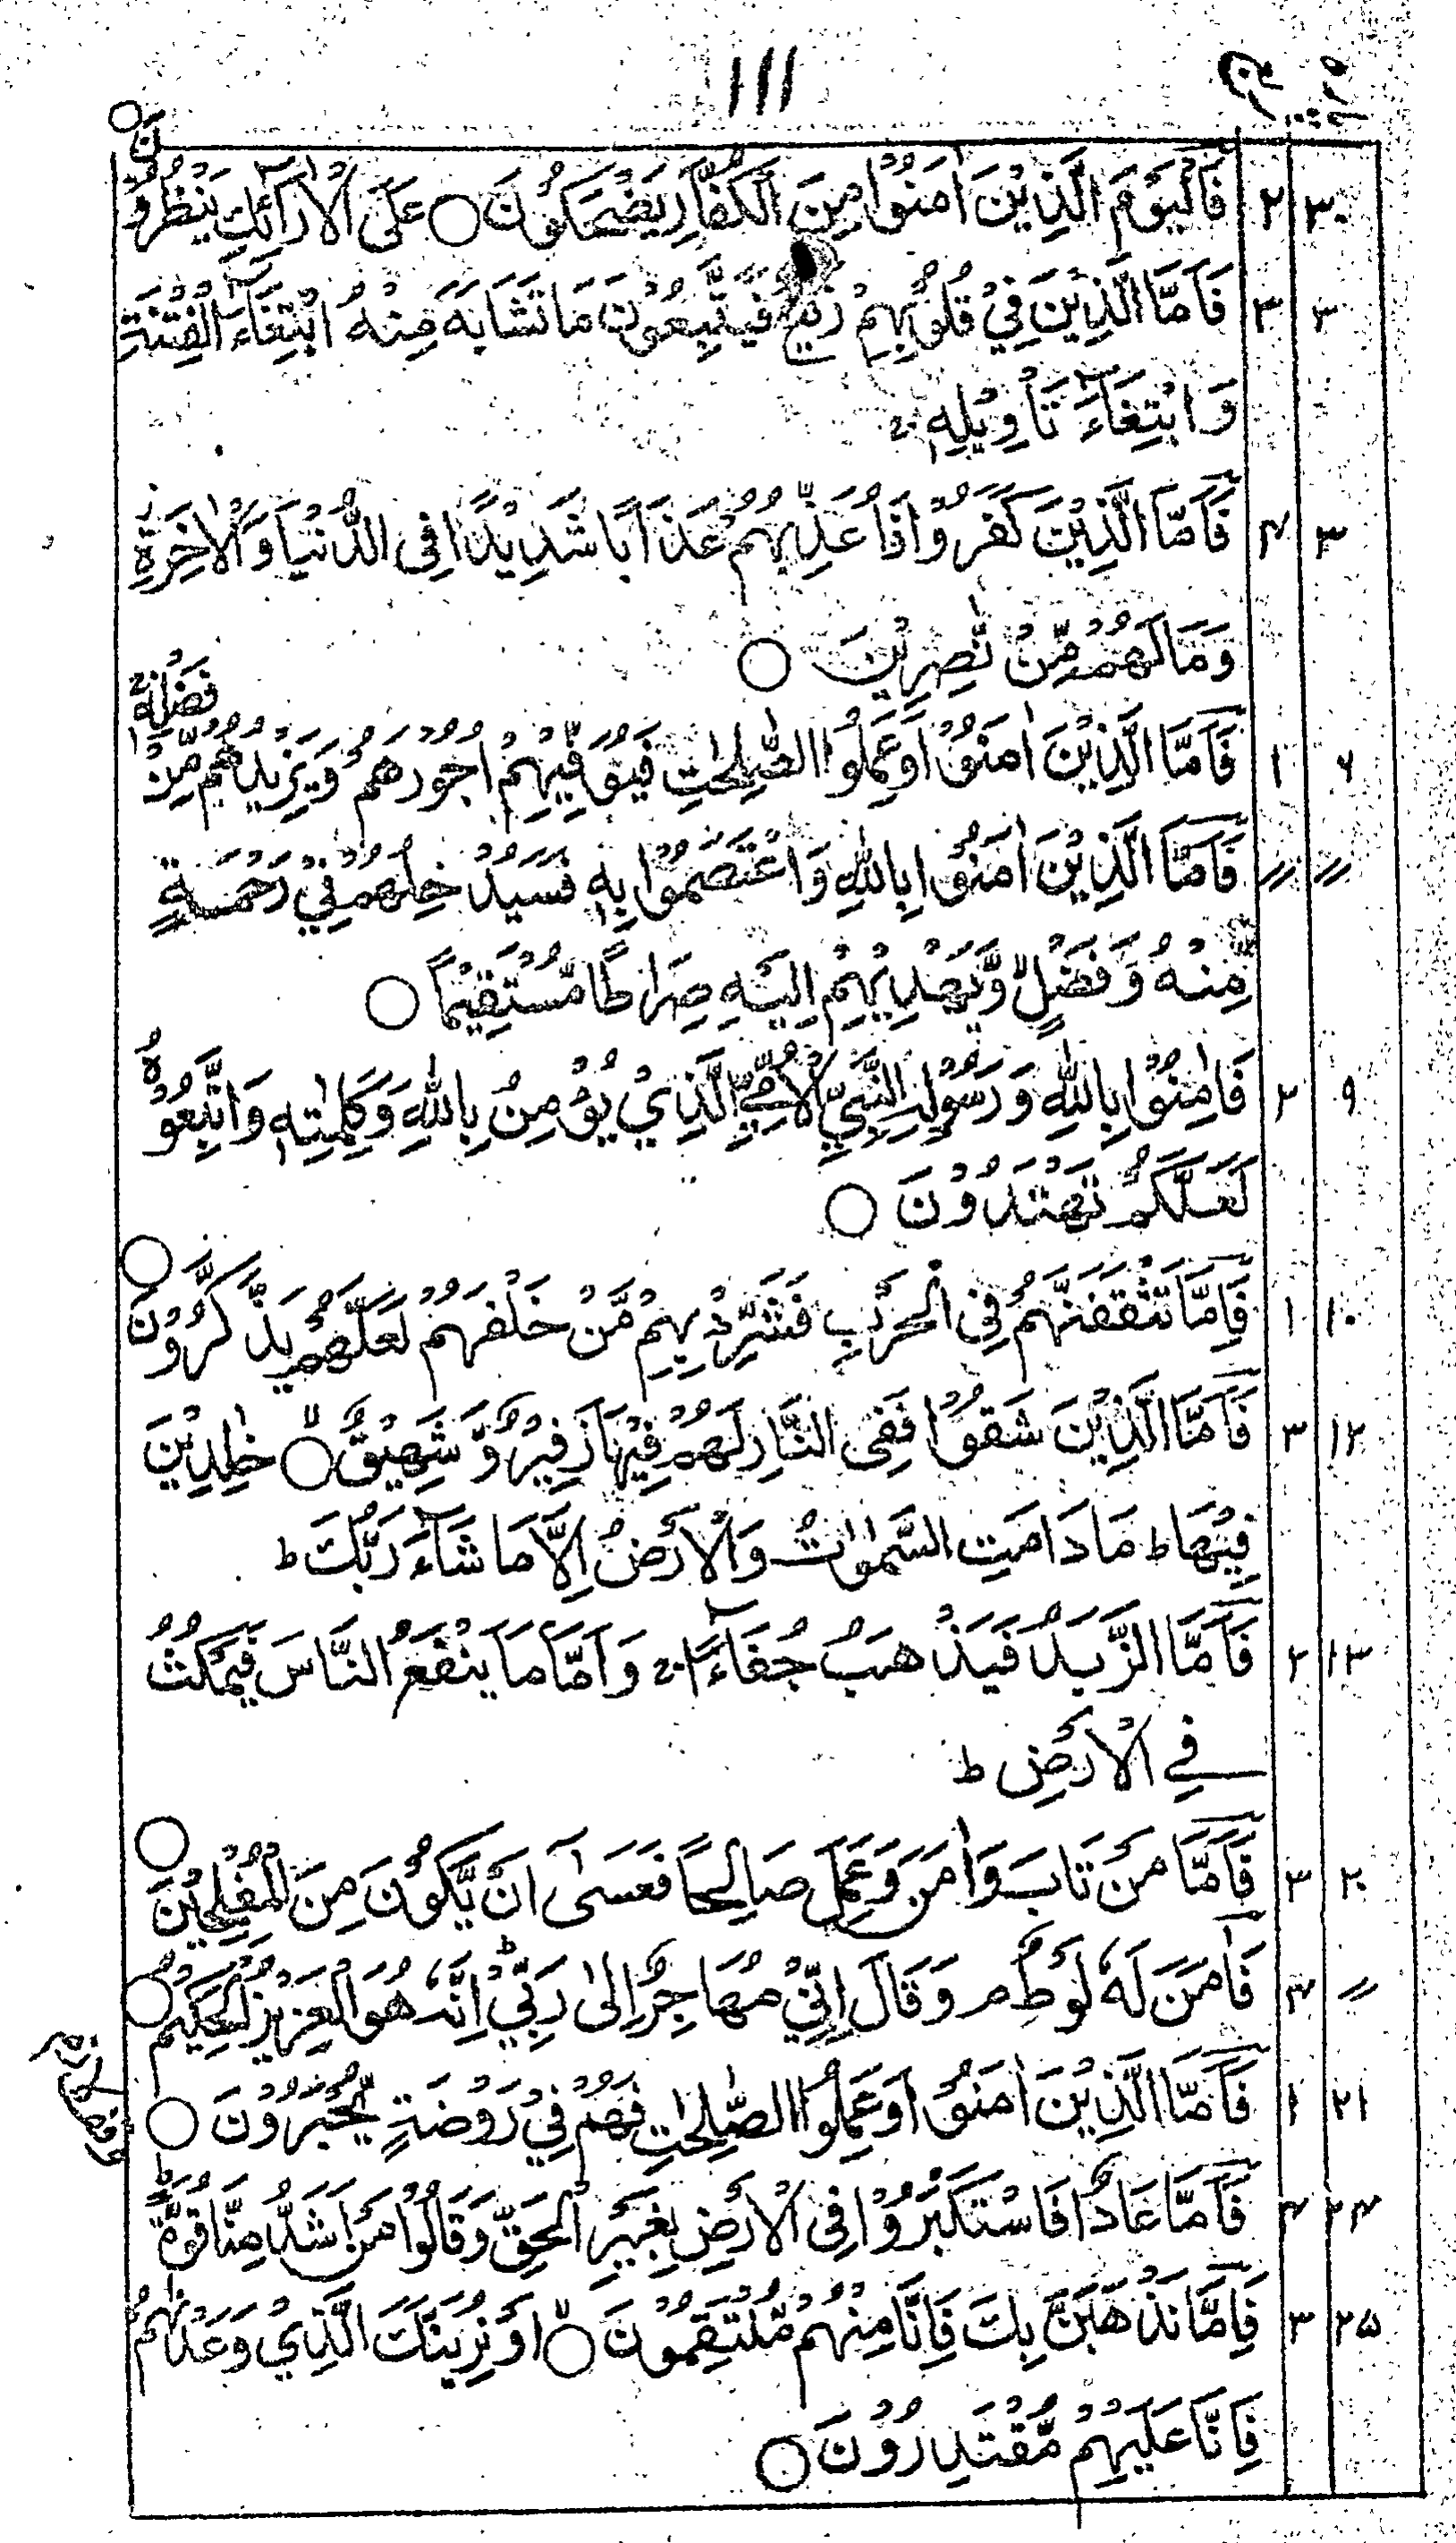 ١١١
پارہ
فَالْيَوْمَ الَّذِيْنَ اٰمَنُوْا مِنَ الْكُفَّارِ يَضْحَكُوْنَ ○ عَلَى الْاَرَآئِكِ يَنْظُرُوْنَ ○ ٢ ٣٠
فَاَمَّا الَّذِيْنَ فِيْ قُلُوْبِهِمْ زَيْغٌ فَيَتَّبِعُوْنَ مَا تَشَابَهَ مِنْهُ ابْتِغَآءَ الْفِتْنَةِ ٣ ٣
وَابْتِغَآءَ تَاْوِيْلِهٖ ج
فَاَمَّا الَّذِيْنَ كَفَرُوْا فَاُعَذِّبُهُمْ عَذَابًا شَدِيْدًا فِى الدُّنْيَا وَالْاٰخِرَةِ ٤ ٣
وَمَا لَهُمْ مِّنْ نّٰصِرِيْنَ ○
فَاَمَّا الَّذِيْنَ اٰمَنُوْا وَعَمِلُوا الصّٰلِحٰتِ فَيُوَفِّيْهِمْ اُجُوْرَهُمْ وَيَزِيْدُهُمْ مِّنْ فَضْلِهٖ ج ١ ٦
فَاَمَّا الَّذِيْنَ اٰمَنُوْا بِاللّٰهِ وَاعْتَصَمُوْا بِهٖ فَسَيُدْخِلُهُمْ فِيْ رَحْمَةٍ ″ ″
مِّنْهُ وَفَضْلٍ وَّيَهْدِيْهِمْ اِلَيْهِ صِرَاطًا مُّسْتَقِيْمًا ○
فَاٰمِنُوْا بِاللّٰهِ وَرَسُوْلِهِ النَّبِيِّ الْاُمِّيِّ الَّذِيْ يُؤْمِنُ بِاللّٰهِ وَكَلِمٰتِهٖ وَاتَّبِعُوْهُ ٢ ٩
لَعَلَّكُمْ تَهْتَدُوْنَ ○
فَاِمَّا تَثْقَفَنَّهُمْ فِى الْحَرْبِ فَشَرِّدْ بِهِمْ مَّنْ خَلْفَهُمْ لَعَلَّهُمْ يَذَّكَّرُوْنَ ○ ١ ١٠
فَاَمَّا الَّذِيْنَ شَقُوْا فَفِى النَّارِ لَهُمْ فِيْهَا زَفِيْرٌ وَّشَهِيْقٌ ○ لا خٰلِدِيْنَ ٣ ١٢
فِيْهَا ط مَا دَامَتِ السَّمٰوٰتُ وَالْاَرْضُ اِلَّا مَا شَآءَ رَبُّكَ ط
فَاَمَّا الزَّبَدُ فَيَذْهَبُ جُفَآءً ج وَاَمَّا مَا يَنْفَعُ النَّاسَ فَيَمْكُثُ ٢ ١٣
فِي الْاَرْضِ ط
فَاَمَّا مَنْ تَابَ وَاٰمَنَ وَعَمِلَ صَالِحًا فَعَسٰٓى اَنْ يَّكُوْنَ مِنَ الْمُفْلِحِيْنَ ○ ٣ ٢٠
فَاٰمَنَ لَهٗ لُوْطٌ م وَقَالَ اِنِّيْ مُهَاجِرٌ اِلٰى رَبِّيْ ط اِنَّهٗ هُوَ الْعَزِيْزُ الْحَكِيْمُ ○ ٤ ″
فَاَمَّا الَّذِيْنَ اٰمَنُوْا وَعَمِلُوا الصّٰلِحٰتِ فَهُمْ فِيْ رَوْضَةٍ يُّحْبَرُوْنَ ○ ١ ٢١
فَاَمَّا عَادٌ فَاسْتَكْبَرُوْا فِى الْاَرْضِ بِغَيْرِ الْحَقِّ وَقَالُوْا مَنْ اَشَدُّ مِنَّا قُوَّةً ط ٤ ٢٤
فَاِمَّا نَذْهَبَنَّ بِكَ فَاِنَّا مِنْهُمْ مُّنْتَقِمُوْنَ ○ لا اَوْ نُرِيَنَّكَ الَّذِيْ وَعَدْنٰهُمْ ٣ ٢٥
فَاِنَّا عَلَيْهِمْ مُّقْتَدِرُوْنَ ○